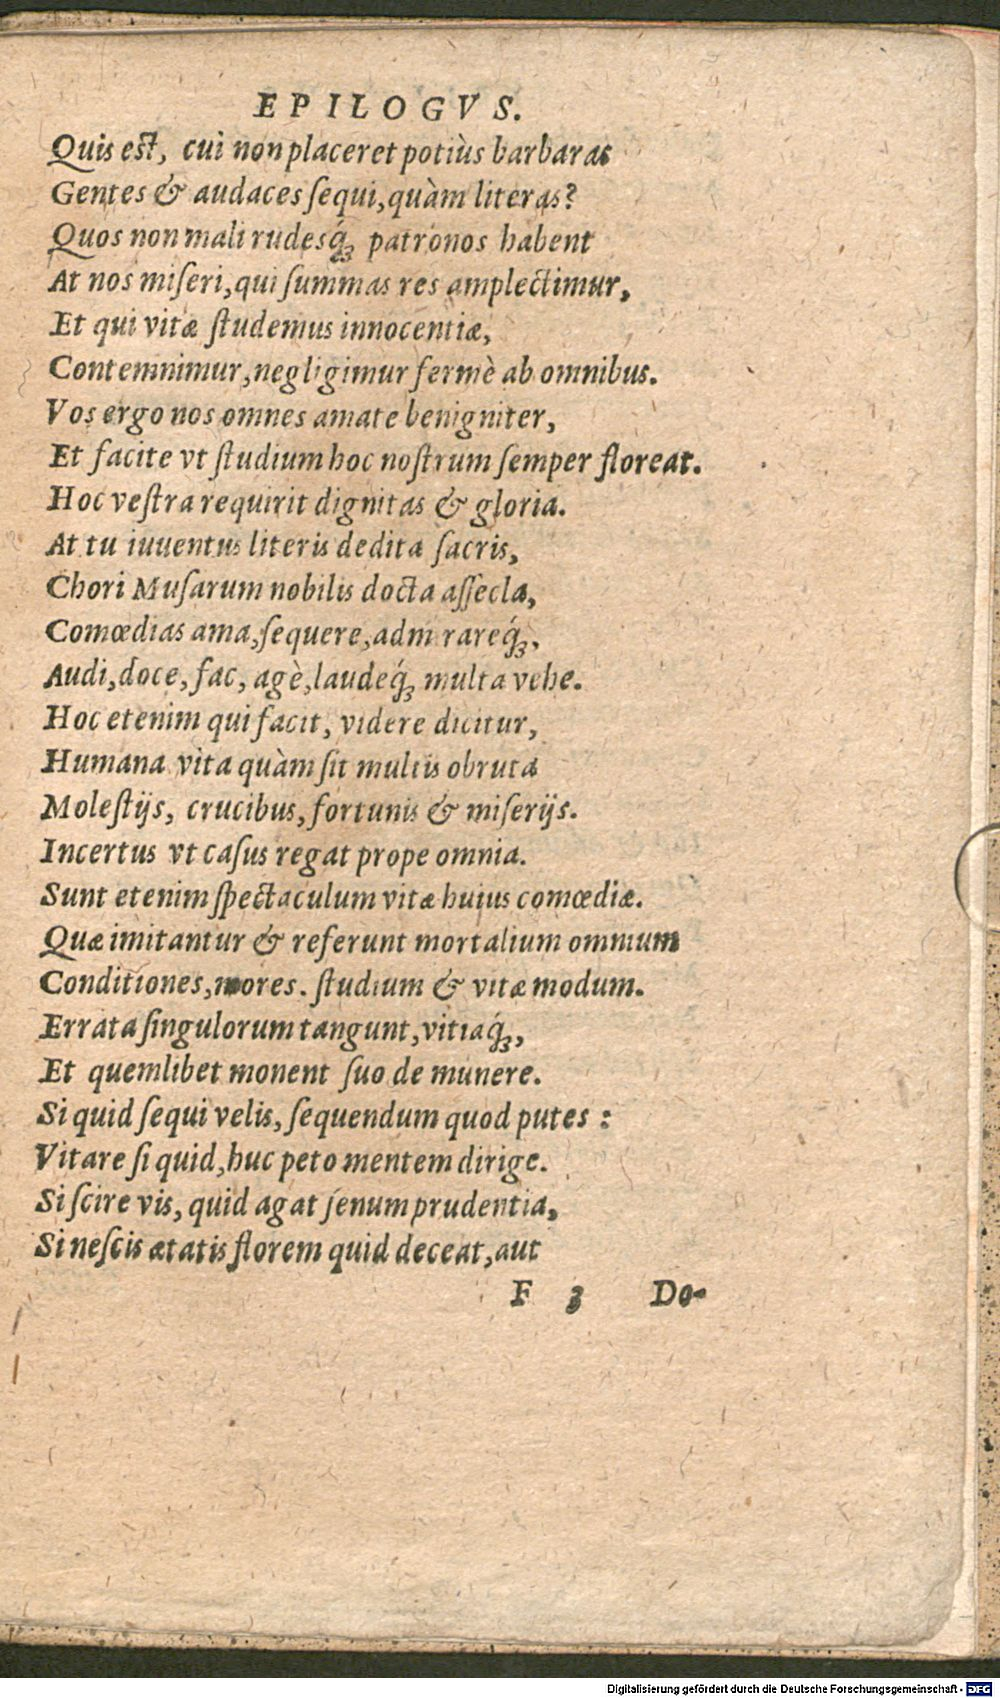 EPILOGVS.
Quis est, cui non placeret potiùs barbaras
Gentes & audaces ſequi, quàm literas?
Quos non mali rudesq́; patronos habent
At nos miſeri, qui ſummas res amplectimur,
Et qui vitæ ſtudemus innocentiæ,
Contemnimur, negligimur fermè ab omnibus.
Vos ergo nos omnes amate benigniter,
Et facite vt ſtudium hoc noſtrum ſemper floreat.
Hoc veſtra requirit dignitas & gloria.
At tu iuuentus literis dedita ſacris,
Chori Muſarum nobilis docta aſſecla,
Comœdias ama, ſequere, admirareq́;,
Audi, doce, fac, agè, laudeq́; multa vehe.
Hoc etenim qui facit, videre dicitur,
Humana vita quàm ſit multis obruta
Moleſtijs, crucibus, fortunis & miſerijs.
Incertus vt caſus regat prope omnia.
Sunt etenim ſpectaculum vitæ huius comœdiæ.
Quæ imitantur & referunt mortalium omnium
Conditiones, mores. ſtudium & vitæ modum.
Errata ſingulorum tangunt, vitiaq́;,
Et quemlibet monent ſuo de munere.
Si quid ſequi velis, ſequendum quod putes:
Vitare ſi quid, huc peto mentem dirige.
Si ſcire vis, quid agat ſenum prudentia,
Si neſcis ætatis florem quid deceat, aut
F 3 Do-
Digitalisierung gefördert durch die Deutsche Forschungsgemeinschaft - DFG